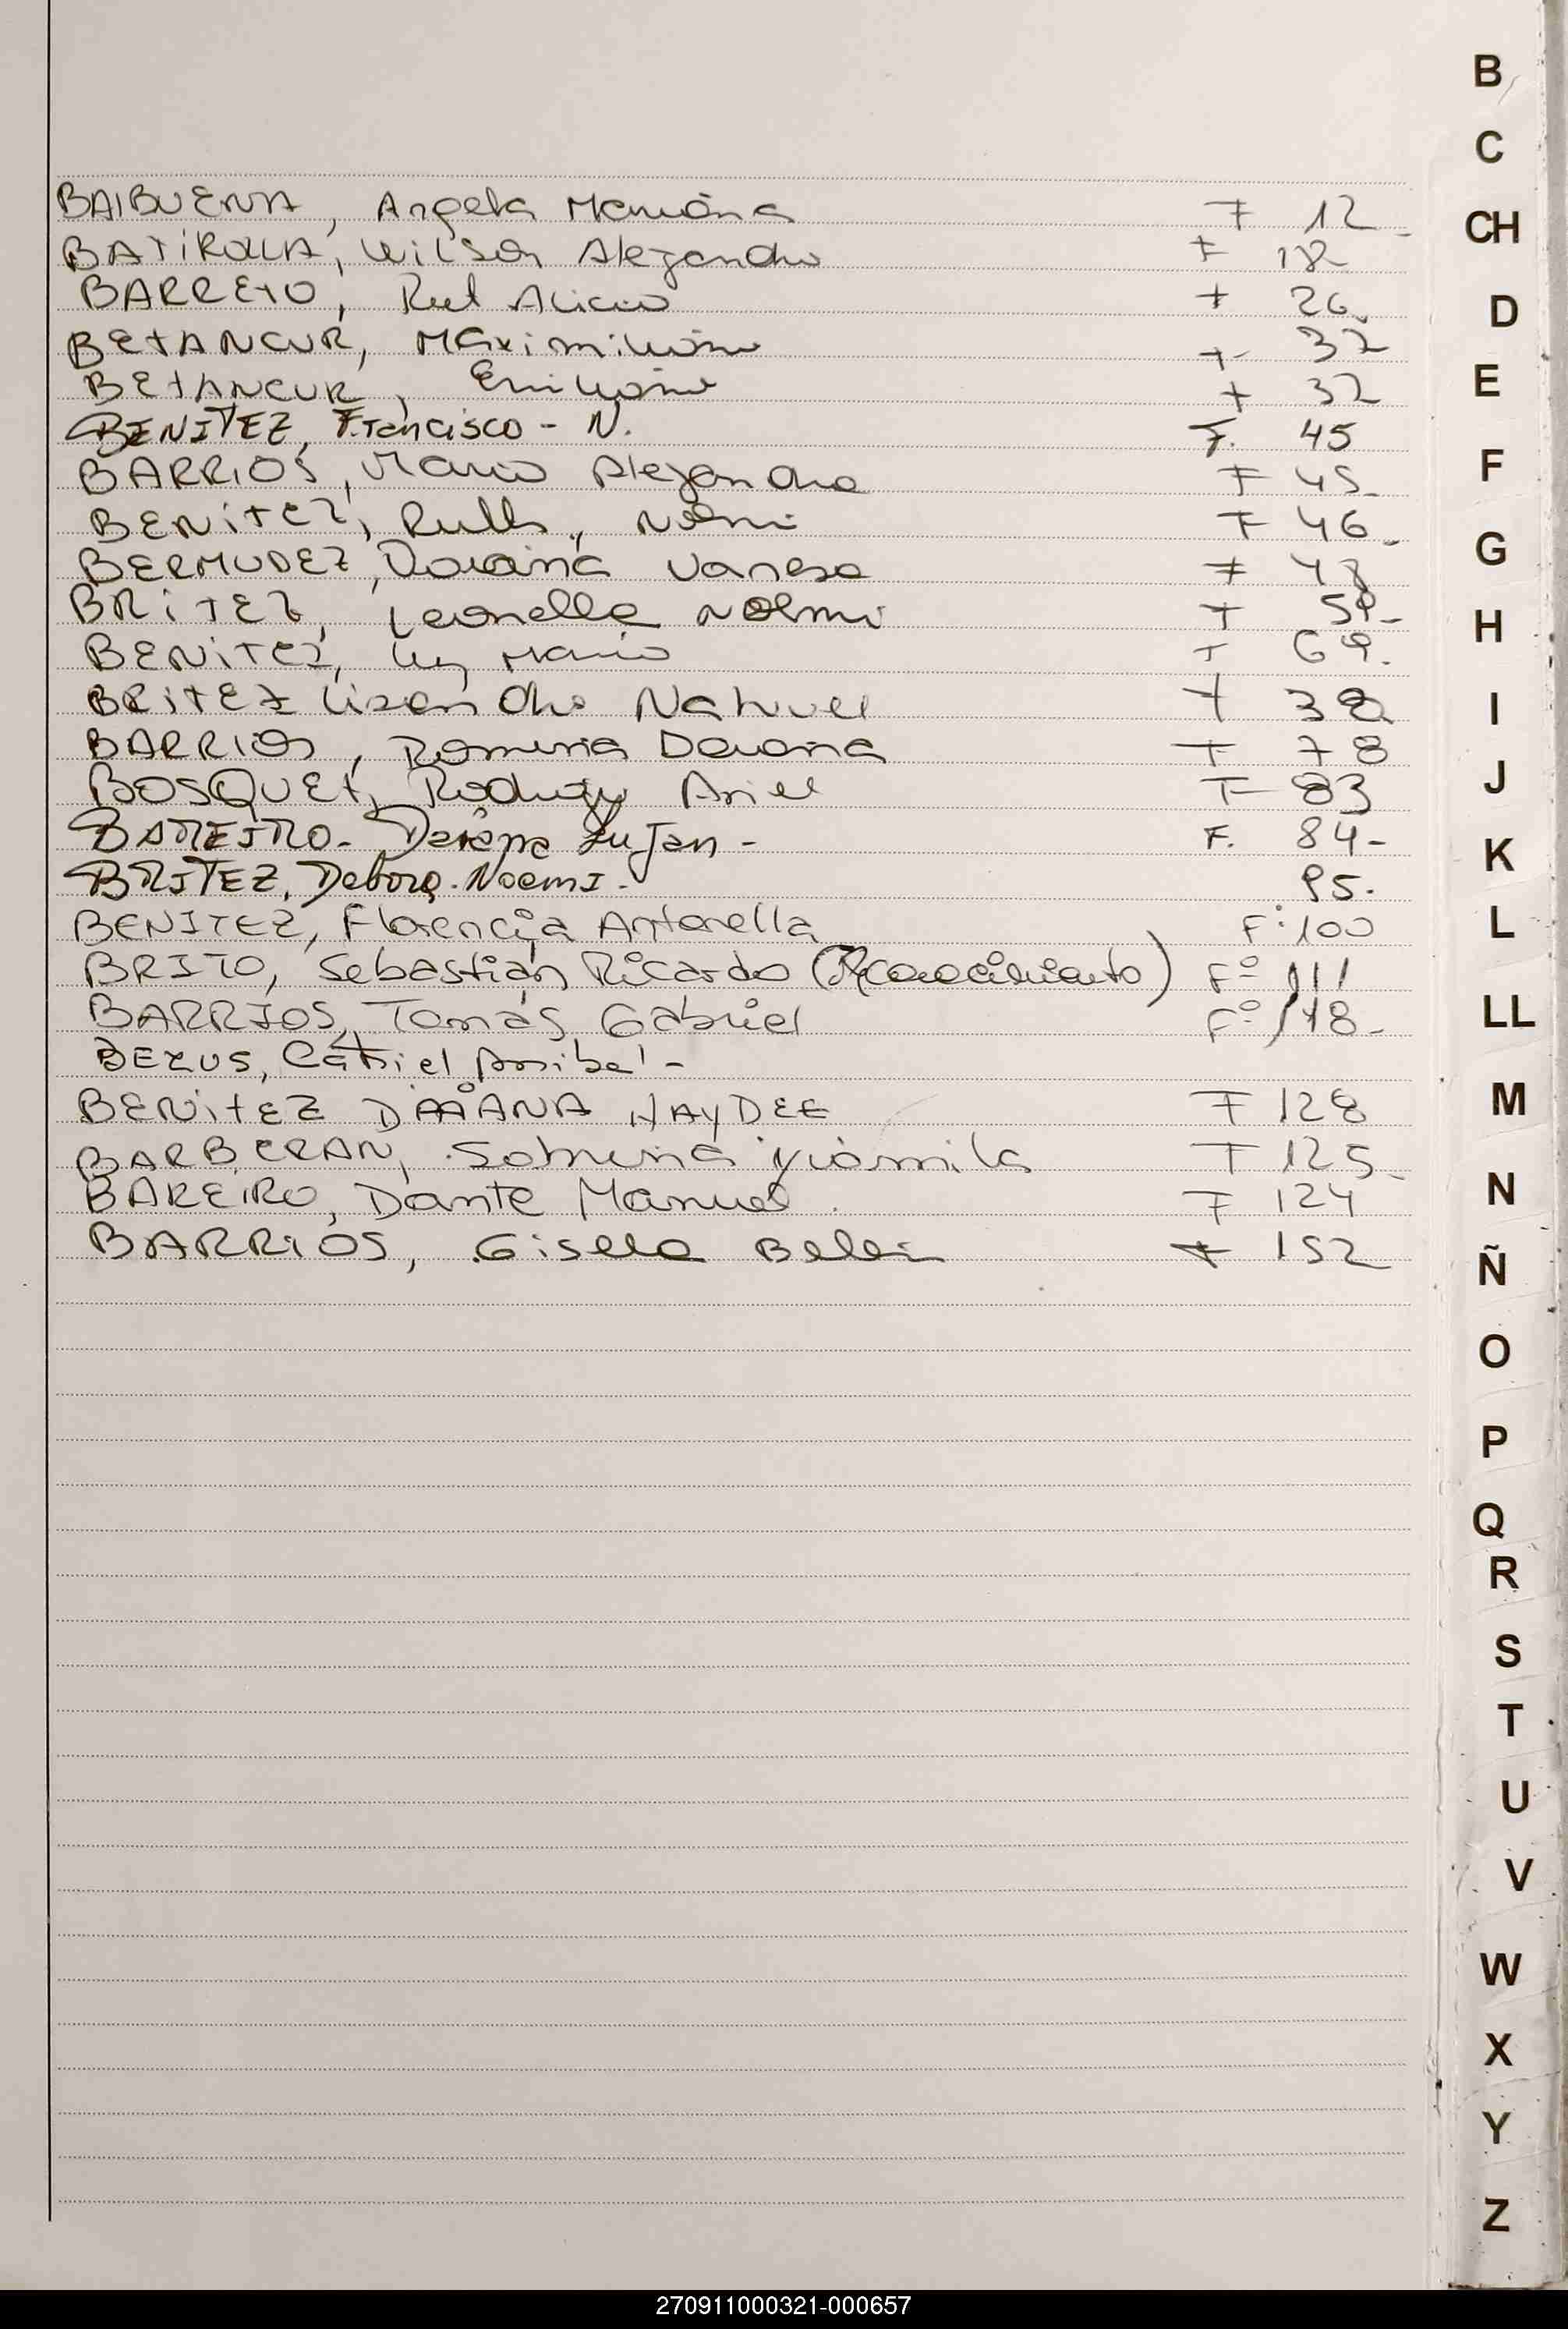 BALBUENA, Angela Mariana F 12
BATIROLLA, Wilson Alejandro F 18
BARRETO, Alicia F 26
BETANCUR, Maximiliano F 32
BETANCUR, Emiliano F 32
BENITEZ, Francisco - N. F. 45
BARRIOS, Mario Alejandro F 45
BENITEZ, Ruth, Noemi F 46
BERMUDEZ, Daiana Vanesa F 48
BRITEZ, Leonella Noemi F 59
BENITEZ, Mario F 69.
BRITEZ Lisandro Nahuel F 38
BARRIOS, Romina Daiana F 78
BOSQUET, Rodrigo Ariel F 83
BAREIRO - Daiana Lujan - F. 84-
BRITEZ, Debora. Noemi. 95.
BENITEZ, Florencia Antonella F: 100
BRITO, Sebastián Ricardo (Reconocimiento) Fº 111
BARRIOS, Tomás Gabriel Fº 118-
BEZUS, Catriel Anibal -
BENITEZ DAIANA HAYDEE F 128
BARBERAN, Sabrina Yiamila F 125
BAREIRO, Dante Manuel F 124
BARRIOS, Gisela Belen F 152
B
C
CH
D
E
F
G
H
I
J
K
L
LL
M
N
Ñ
O
P
Q
R
S
T
U
V
W
X
Y
Z
270911000321-000657